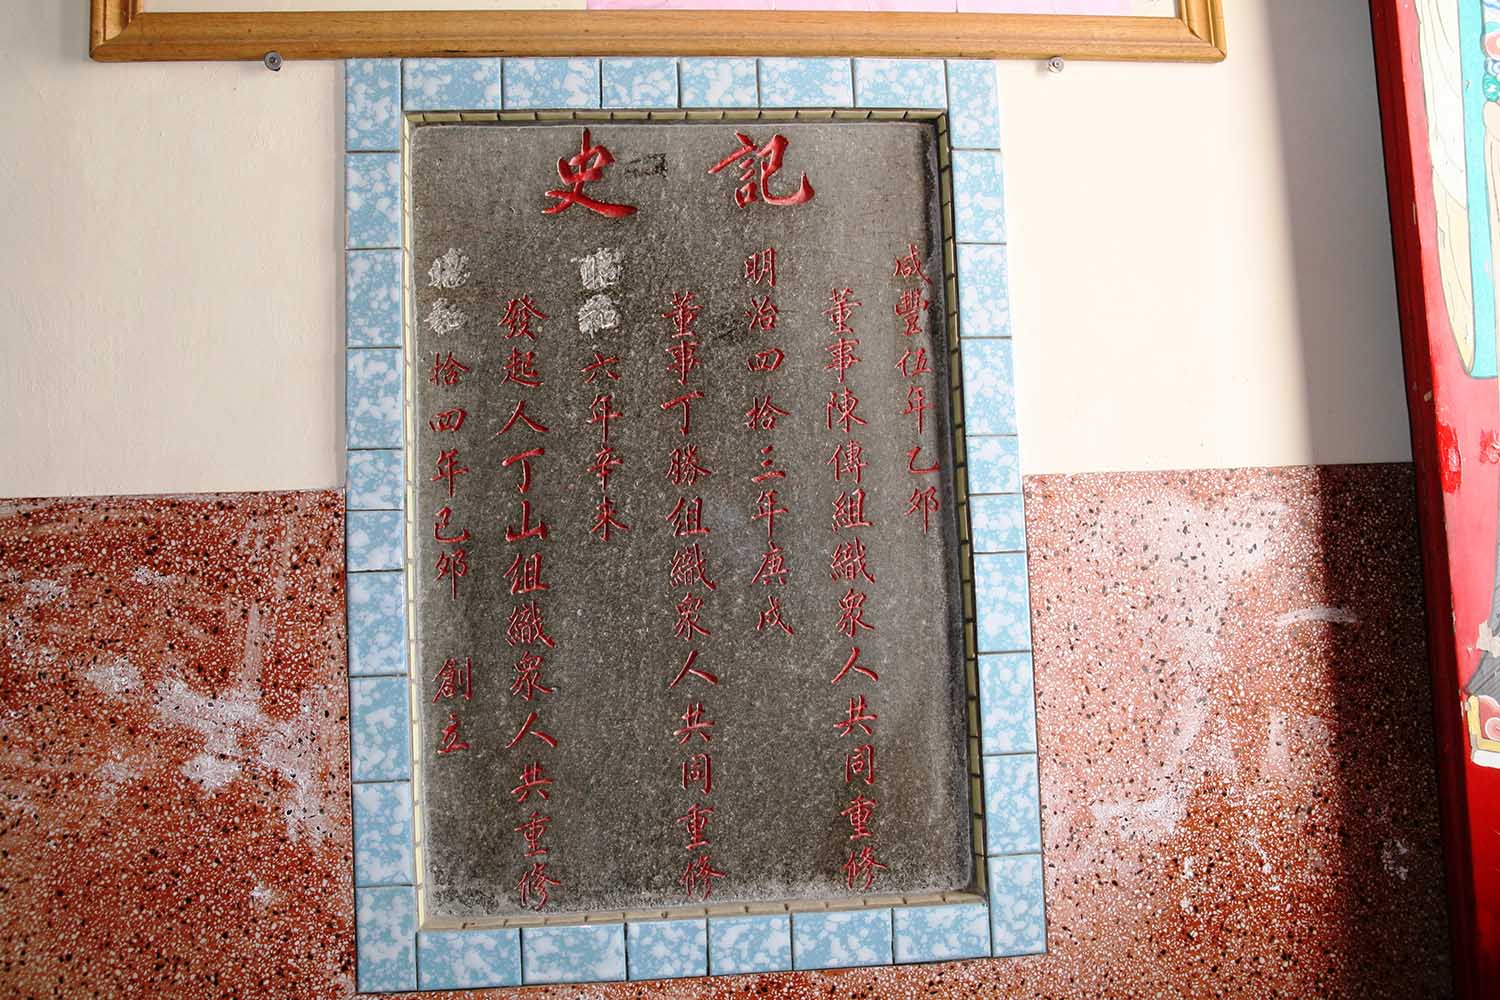 記史
咸豐伍年乙卯
董事陳傳組織眾人共同重修
明治四拾三年庚戌
董事丁勝組織眾人共同重修
六年辛未
發起人丁山組織眾人共重修
拾四年己卯 創立